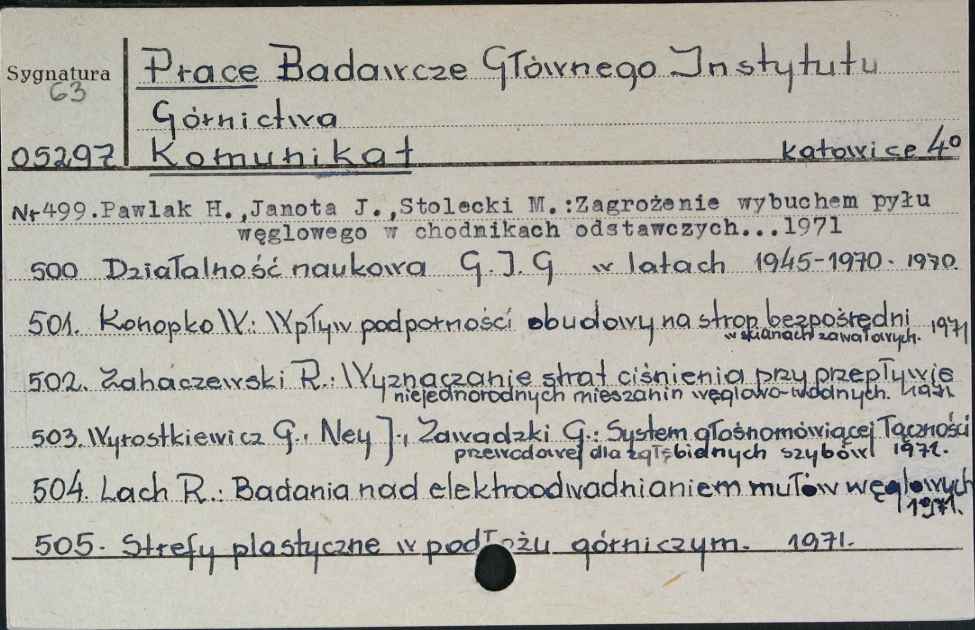 Sygnatura
63
05297
Prace Badawcze Głównego Instytutu
Górnictwa
Komunikat Katowice 4°
Nr 499. Pawlak H., Janota J., Stolecki M.: Zagrożenie wybuchem pyłu
węglowego w chodnikach odstawczych...1971
500 Działalność naukowa G.I.G w latach 1945-1970. 1970.
501. Konopko W.: Wpływ podporności obudowy na strop bezpośredni
w ścianach zawałowych. 1971
502. Zahaczewski R.: Wyznaczanie strat ciśnienia przy przepływie
niejednorodnych mieszanin węglowo-wodnych. 1971
503. Wyrostkiewicz G., Ney J., Zawadzki G.: System głośnomówiącej łączności
przewodowej dla zgłębianych szybów 1971.
504. Lach R.: Badania nad elektroodwadnianiem mułów węglowych
1971.
505. Strefy plastyczne w podłożu górniczym. 1971.